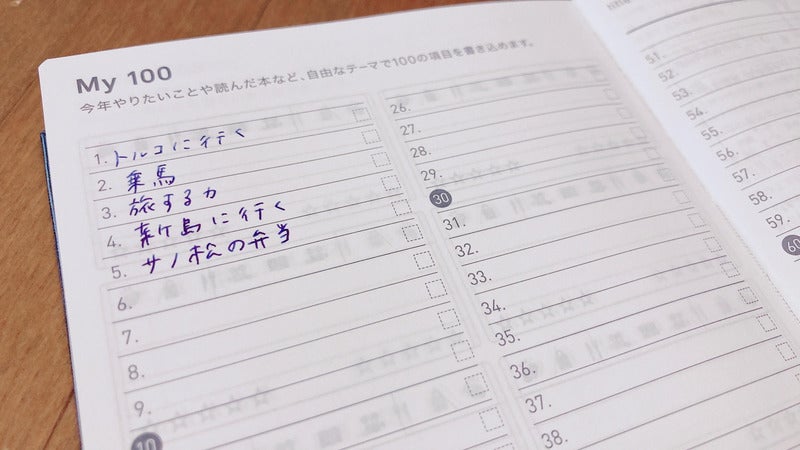 My 100
今年やりたいことや読んだ本など、自由なテーマで100の項目を書き込めます。
1. トルコに行く
2. 乗馬
3. 旅する力
4. ケ島に行く
5. 松の弁当
6.
7.
8.
9.
10
26.
27.
28.
29.
30
31.
32.
33.
34.
35.
36.
37.
38.
51.
52.
53.
54.
55.
56.
57.
58.
59.
60